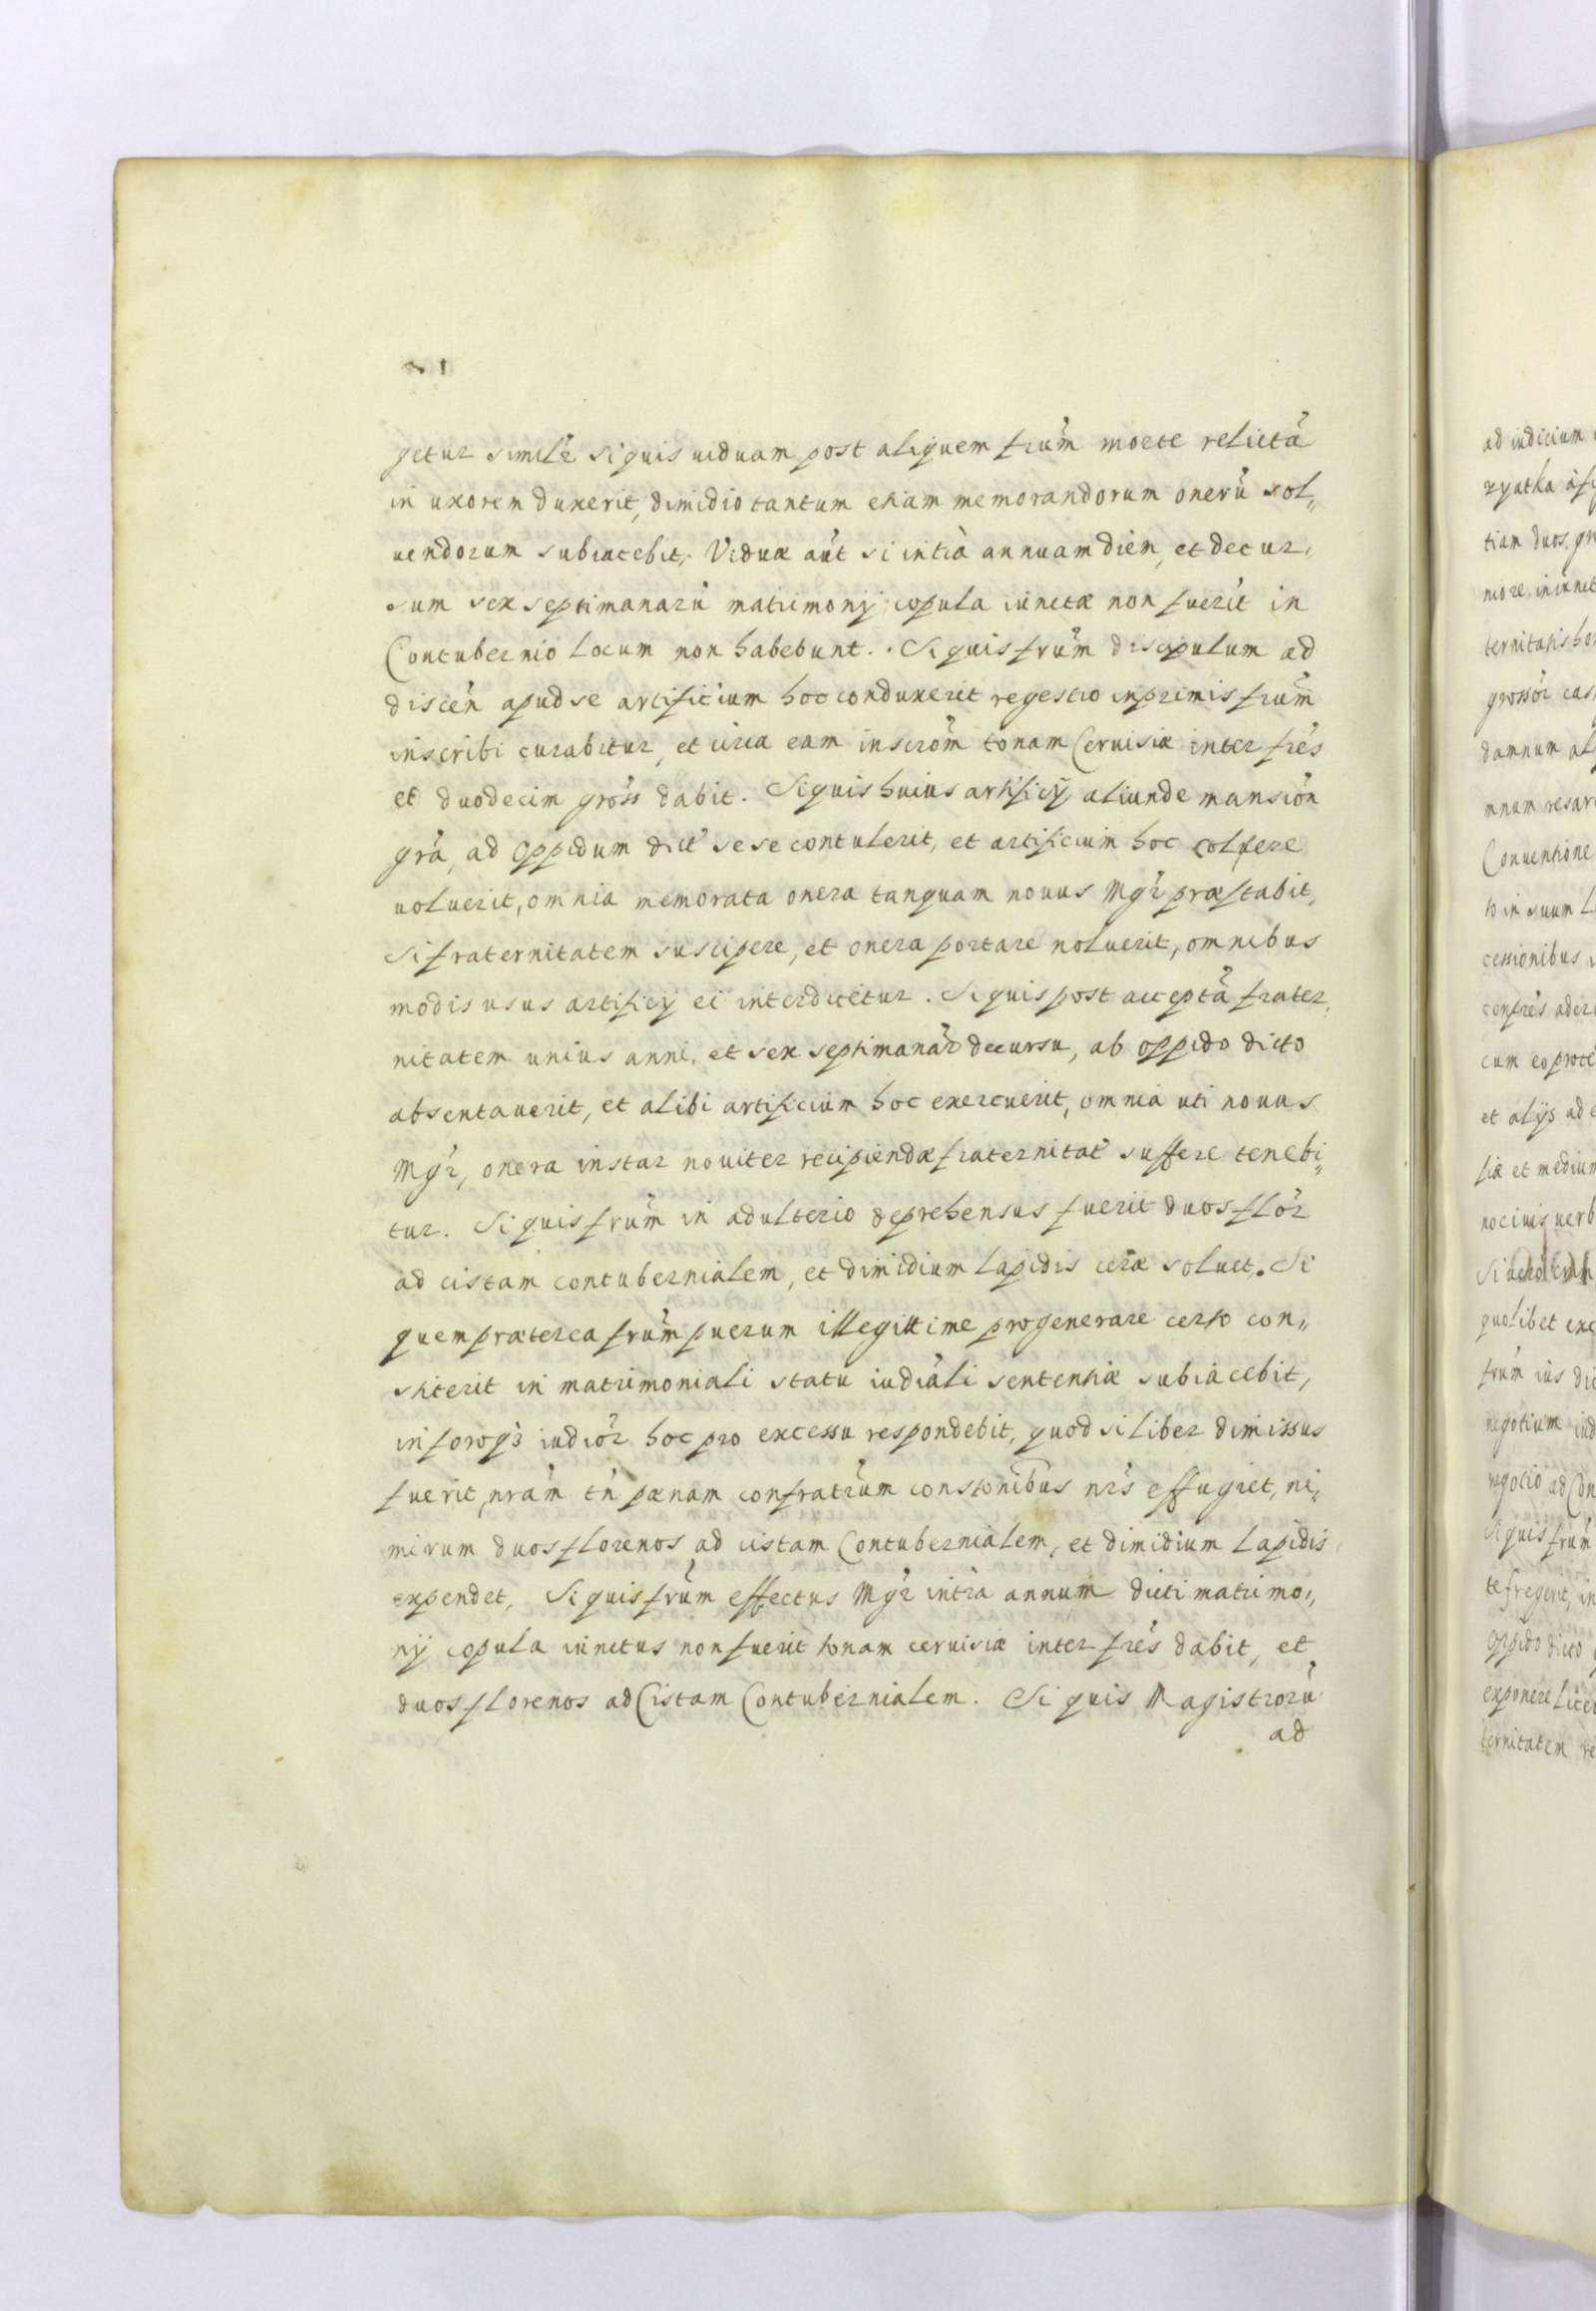 getur simile si quis uiduam post aliquem frum̃ morte relictã
in uxorem duxerit, dimidio tantum etiam memorandorum onerũ sol„
uendorum subiacebit. Viduæ aut̃ si intra annuam diem, et decur,
sum sex septimanarũ matrimonij copula iunctæ non fuerit in
Contubernio locum non habebunt. Si quis frum̃ discipulum ad
discen̄ apud se artificium hoc conduxerit regestro inprimis frum̃
inscribi curabitur, et circa eam inscrom̃ tonam Ceruisiæ inter frẽs
et duodecim gross̃ dabit. Si quis huius artificij aliunde mansion̄
gr̃a, ad Oppidum dict̃ sese contulerit, et artificium hoc colere
uoluerit, omnia memorata onera tanquam nouus Mgr̃ præstabit,
si fraternitatem suscipere, et onera portare noluerit, omnibus
modis usus artificij ei interdicetur. Si quis post acceptã frater,
nitatem unius anni, et sex septimanar̃ decursu, ab oppido dicto
absentauerit, et alibi artificium hoc exercuerit, omnia uti nouus
Mgr̃, onera instar nouiter recipiendæ fraternitat̃ sufferre tenebi„
tur. Si quis frum̃ in adulterio deprehensus fuerit duos flor̃
ad cistam contubernialem, et dimidium lapidis ceræ soluet. Si
quem præterea frum̃ puerum illegittime progenerare certo con„
stiterit in matrimoniali statu iudiãli sententiæ subiacebit,
in foroq̃ iudior̃ hoc pro excessu respondebit, quod si liber dimissus
fuerit, nram̃ tn̄ pænam confratrum̃ constonibus̃ nrĩs effugiet, ni„
mirum duos florenos ad cistam Contubernialem, et dimidium lapidis
expendet, Si quis frum̃ effectus Mgr̃ intra annum dicti matrimo„
nij copula iunctus non fuerit tonam ceruisiæ inter frẽs dabit, et
duos florenos ad Cistam Contubernialem. Si quis Magistrorũ
ad
ad iudicium
ryatka
tiam duos
ternitatis
damnum
mnum
Conuentione
to in suum
cessionibus
confrẽs
cum eo
et alijs ad
siæ et medium
nociuis uerb
quolibet
frum̃ ius
negotium
negotio ad Con
Si quis frum̃
te fregerit, in
Oppido dicto
exponere
ternitatem re